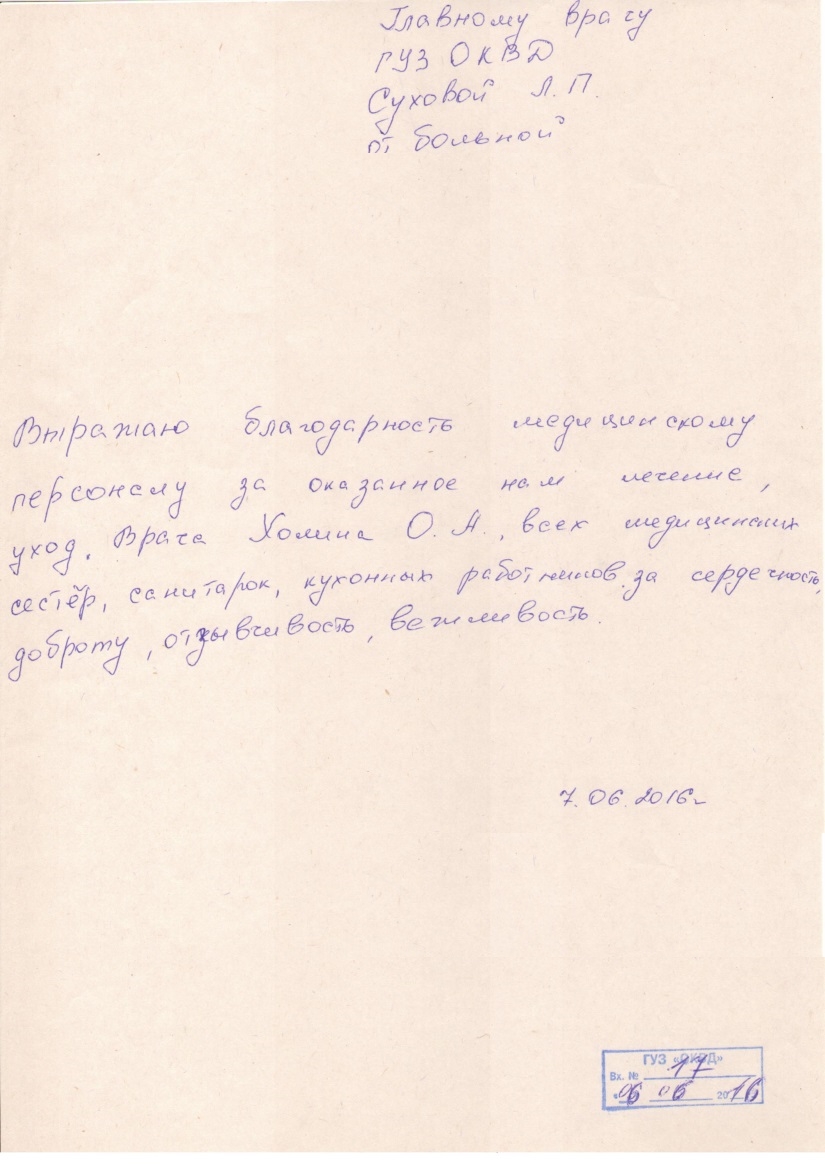 Главному врачу
ГУЗ ОКВД
Суховой Л.П.
от больной
Выражаю благодарность медицинскому
персоналу за оказанное нам лечение,
уход. Врача Холина О.А., всех медицинских
сестёр, санитарок, кухонных работников за сердечность,
доброту, отзывчивость, вежливость.
7.06.2016г
ГУЗ «ОКВД»
Вх. № 17
«06» 06 2016